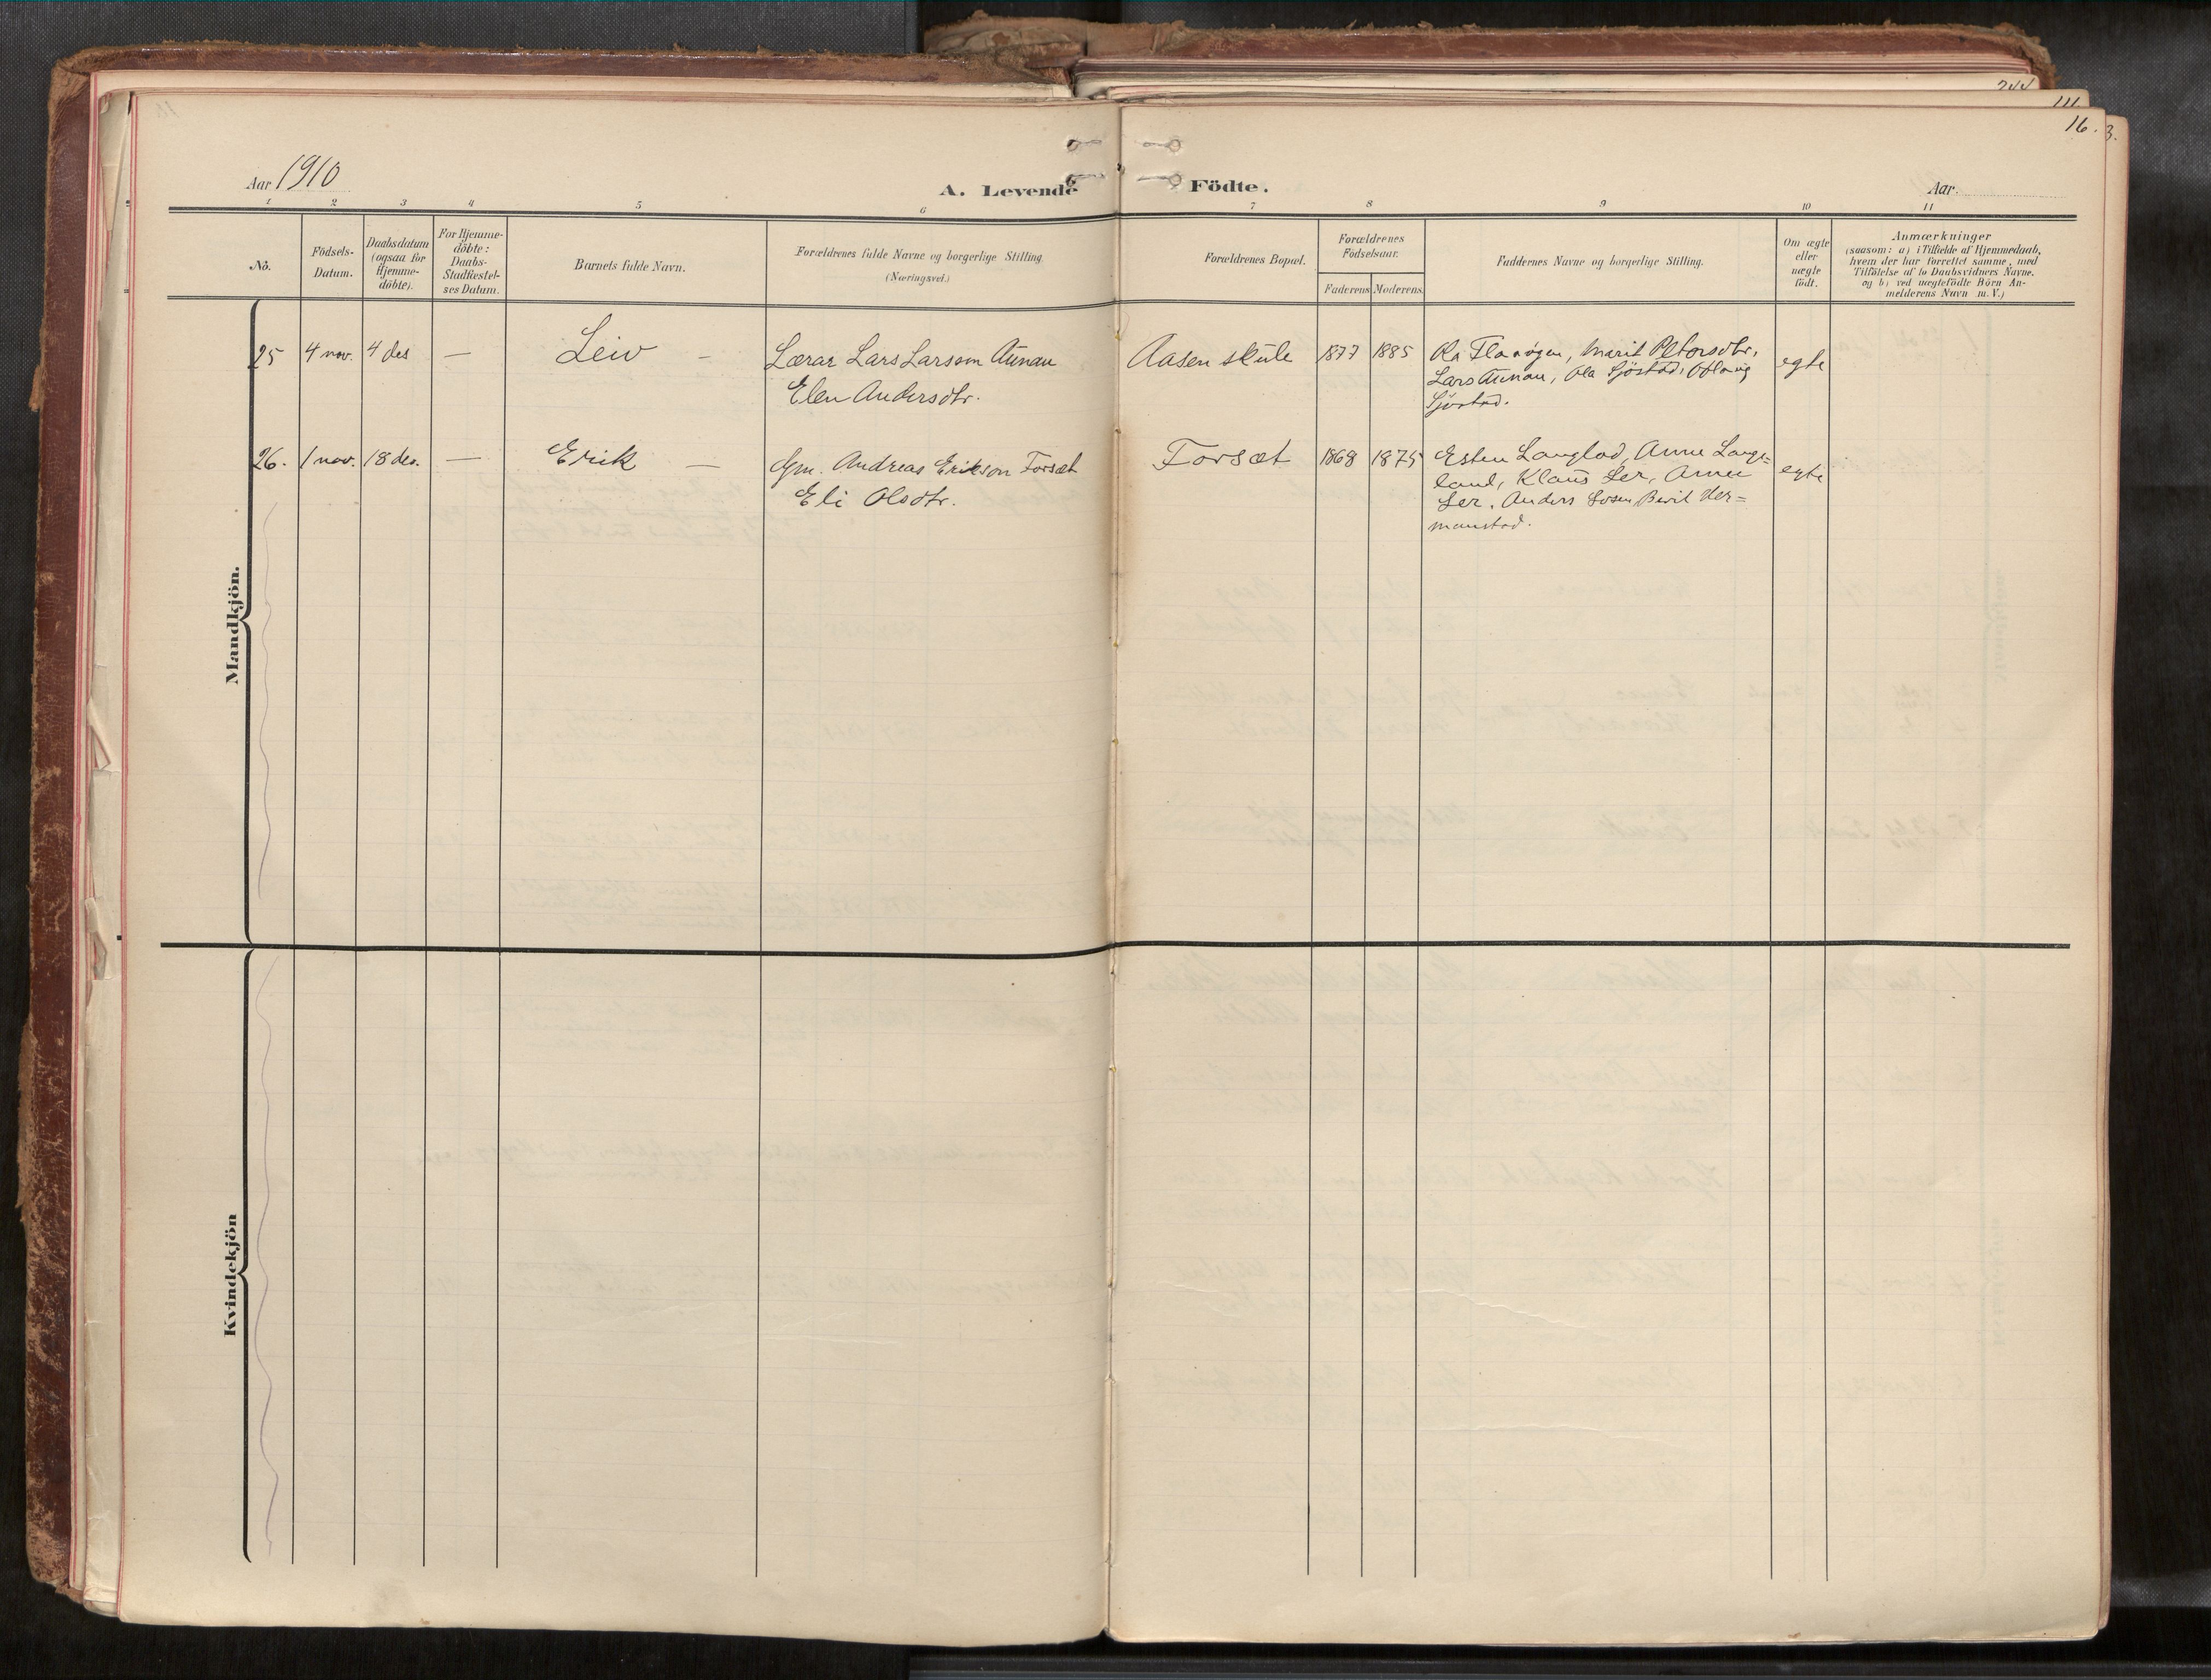 244
111.
16.
3.
Aar 1910
A. Levende Födte.
Aar.
1 2 3 4 5 6 7 8 9 10 11
No.
Födsels-
Datum.
Daabsdatum
(ogsaa for
Hjemme-
döbte).
For Hjemme-
döbte:
Daabs-
Stadfæstel-
ses Datum.
Barnets fulde Navn.
Forældrenes fulde Navne og borgerlige Stilling
(Næringsvei.)
Forældrenes Bopæl.
Forældrenes
Födselsaar.
Faderens Moderens.
Faddernes Navne og borgerlige Stilling.
Om ægte
eller
uægte
födt.
Anmærkninger
(saasom: a) i Tilfælde af Hjemmedaab,
hvem der har forrettet samme, med
Tilföielse af to Daabsvidners Navne.
og b) ved uægtefödte Börn An-
melderens Navn m. V.)
Mandkjön.
25 4 nov. 4 des — Leiv –
Lærar Lars Larsom Aunau
Elen Andersdtr.
Aasen skule 1877 1885
Ola Flaaøgen, Marit Petersdtr,
Lars Aunau, Ola Sjöstad,
Sjöstad.
egte
26. 1 nov. 18 des. — Erik —
Gm. Andreas Erikson Forsæt
Eli Olsdtr.
Forsæt 1868 1875
Esten Langlad, Anne Lang=
land, Klaus Ler, Anne
Ler, Anders Losen, Berit Her=
manstad.
egte
Kvindekjön